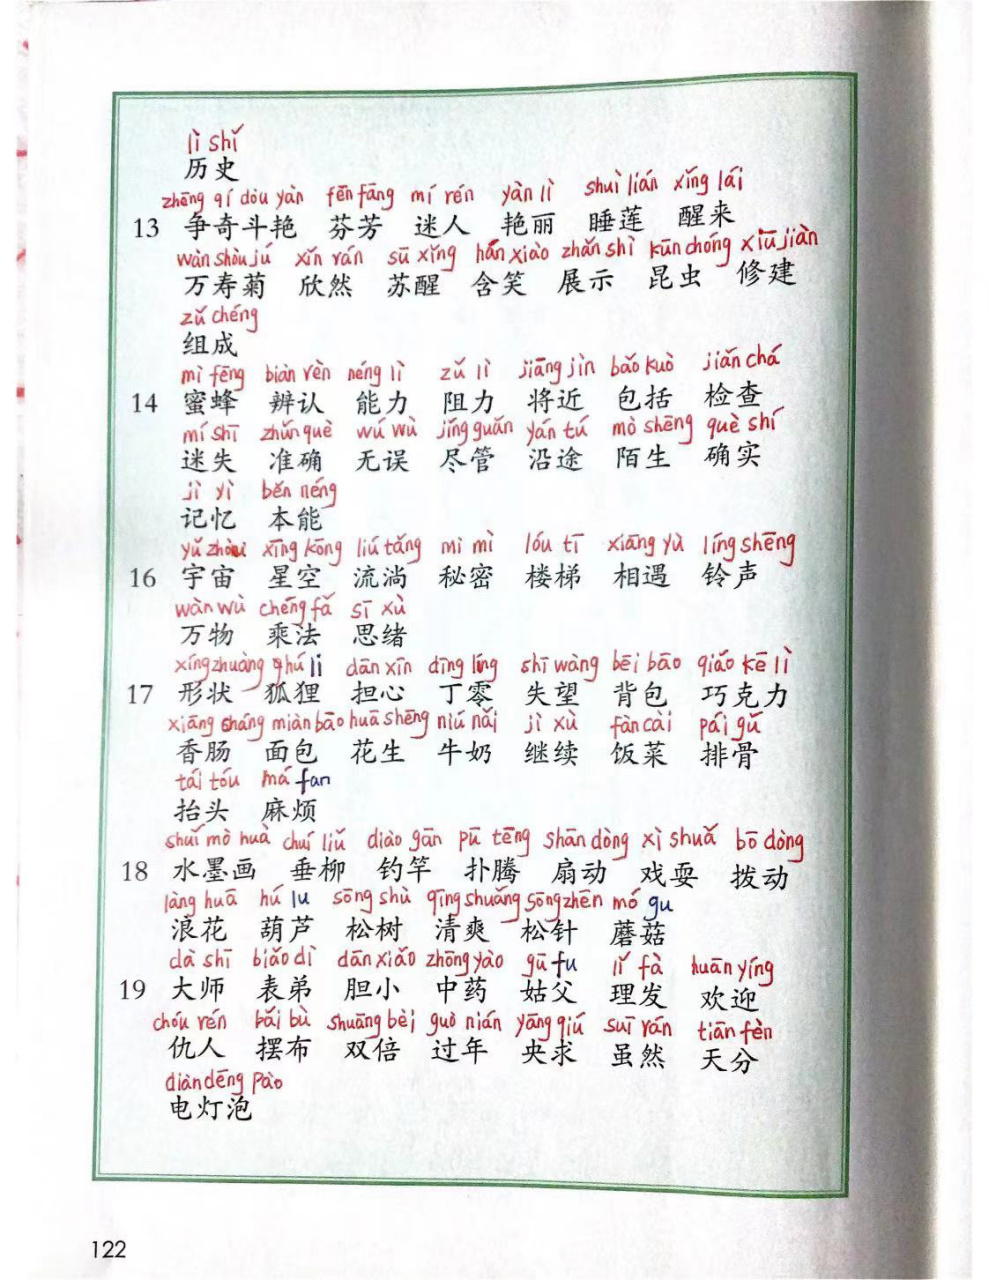 lì shǐ
历史
zhēng qí dòu yàn fēn fāng mí rén yàn lì shuì lián xǐng lái
13 争奇斗艳 芬芳 迷人 艳丽 睡莲 醒来
wàn shòu jú xīn rán sū xǐng hán xiào zhǎn shì kūn chóng xiū jiàn
万寿菊 欣然 苏醒 含笑 展示 昆虫 修建
zǔ chéng
组成
mì fēng biàn rèn néng lì zǔ lì jiāng jìn bāo kuò jiǎn chá
14 蜜蜂 辨认 能力 阻力 将近 包括 检查
mí shī zhǔn què wú wù jǐng guǎn yán tú mò shēng què shí
迷失 准确 无误 尽管 沿途 陌生 确实
jì yì běn néng
记忆 本能
yǔ zhòu xīng kōng liú tǎng mì mì lóu tī xiāng yù líng shēng
16 宇宙 星空 流淌 秘密 楼梯 相遇 铃声
wàn wù chéng fǎ sī xù
万物 乘法 思绪
xíng zhuàng hú li dān xīn dīng líng shī wàng bēi bāo qiǎo kē lì
17 形状 狐狸 担心 丁零 失望 背包 巧克力
xiāng cháng miàn bāo huā shēng niú nǎi jì xù fàn cài pái gǔ
香肠 面包 花生 牛奶 继续 饭菜 排骨
tái tóu má fan
抬头 麻烦
shuǐ mò huà chuí liǔ diào gān pū tēng shān dòng xì shuǎ bō dòng
18 水墨画 垂柳 钓竿 扑腾 扇动 戏耍 拨动
làng huā hú lu sōng shù qīng shuǎng sōng zhēn mó gu
浪花 葫芦 松树 清爽 松针 蘑菇
dà shī biǎo dì dǎn xiǎo zhōng yào gū fu lǐ fà huān yíng
19 大师 表弟 胆小 中药 姑父 理发 欢迎
chóu rén bǎi bù shuāng bèi guò nián yāng qiú suī rán tiān fèn
仇人 摆布 双倍 过年 央求 虽然 天分
diàn dēng pào
电灯泡
122